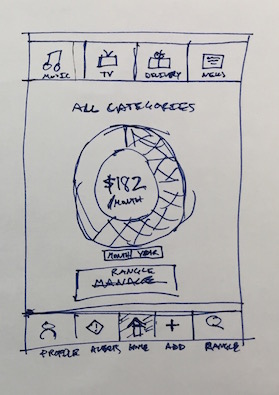 MUSIC TV DELIVERY NEWS
ALL CATEGORIES
$182
/MONTH
MONTH YEAR
RANGLE
MANAGE
PROFILE ALERTS HOME ADD RANGLE